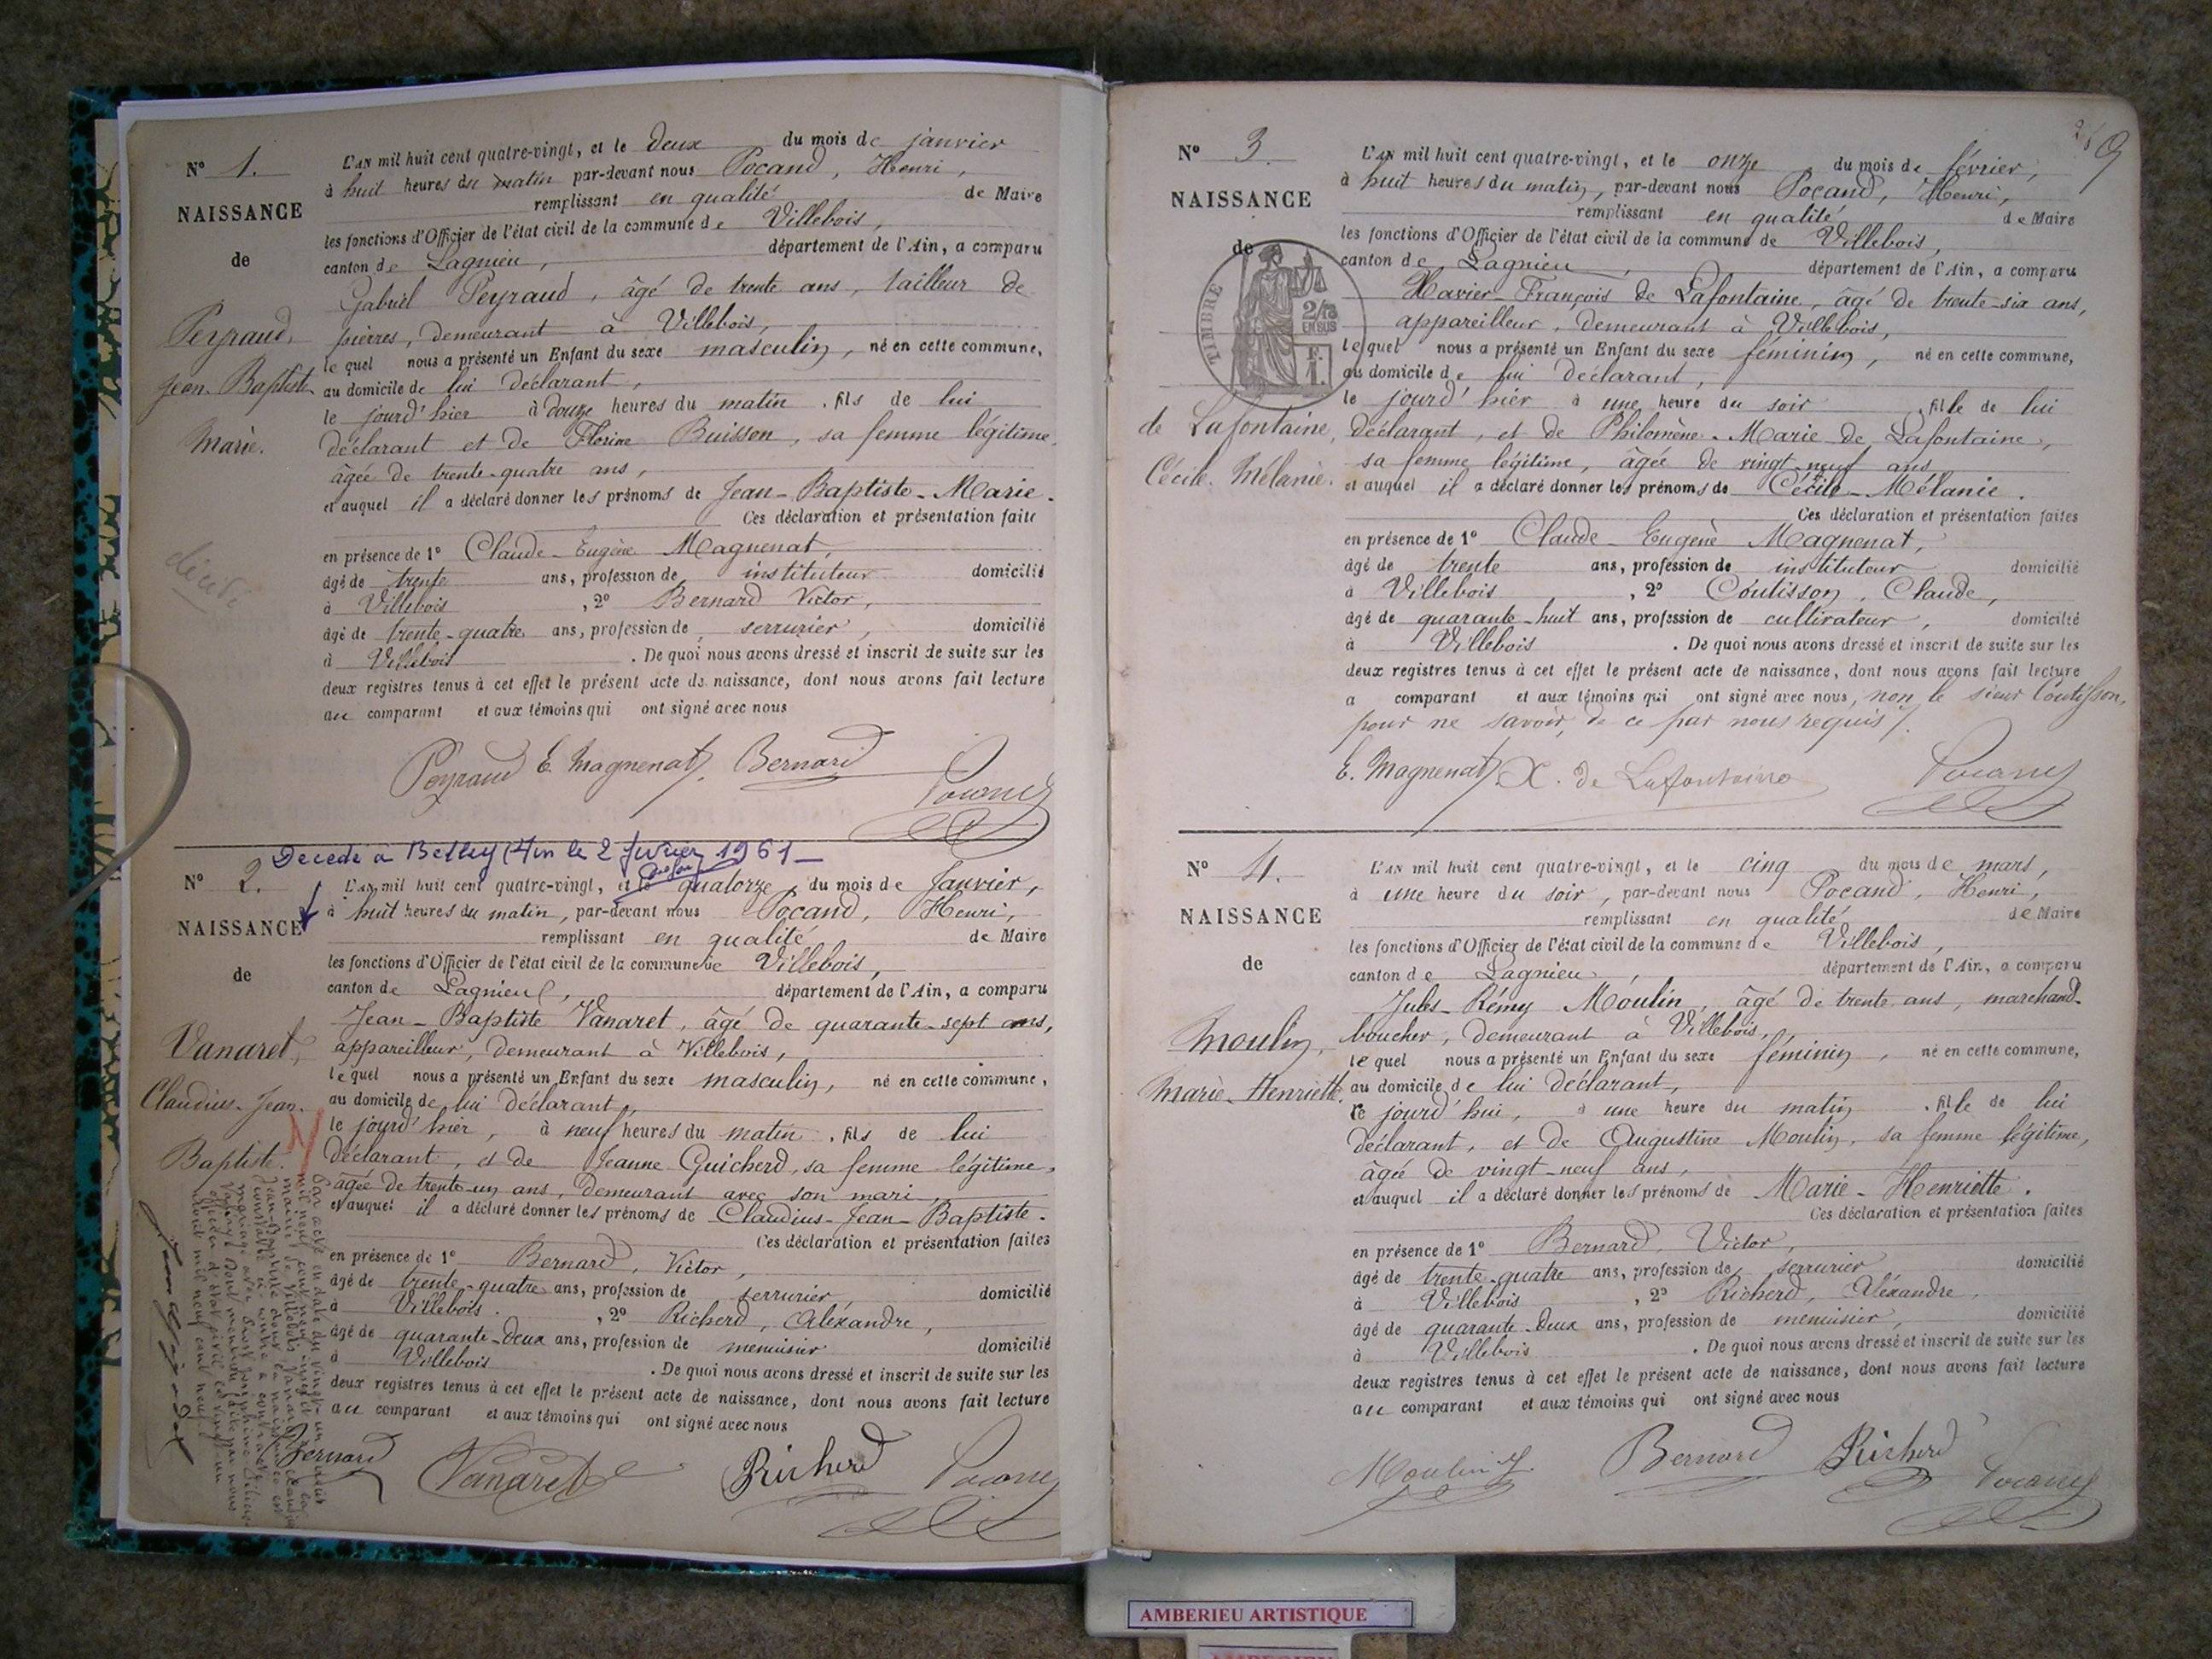 Nº 1.
NAISSANCE
de
Peyraud,
Jean-Baptiste
Marie.
décédé
L'AN mil huit cent quatre-vingt, et le deux du mois de janvier
à huit heures du matin par-devant nous Pocand, Henri,
remplissant en qualité de Maire
les fonctions d'Officier de l'état civil de la commune de Villebois,
canton de Lagnieu, département de l'Ain, a comparu
Gabriel Peyraud, âgé de trente ans, tailleur de
pierres, demeurant à Villebois,
lequel nous a présenté un Enfant du sexe masculin, né en cette commune,
au domicile de lui déclarant,
le jourd'hier à douze heures du matin, fils de lui
déclarant et de Florine Buisson, sa femme légitime,
âgée de trente-quatre ans,
et auquel il a déclaré donner les prénoms de Jean-Baptiste-Marie.
Ces déclaration et présentation faite
en présence de 1º Claude-Eugène Magnenat,
âgé de trente ans, profession de instituteur domicilié
à Villebois, 2º Bernard Victor,
âgé de trente-quatre ans, profession de serrurier, domicilié
à Villebois. De quoi nous avons dressé et inscrit de suite sur les
deux registres tenus à cet effet le présent acte de naissance, dont nous avons fait lecture
au comparant et aux témoins qui ont signé avec nous
Peyraud E. Magnenat Bernard
Pocand
Décédé à Belley (Ain le 2 février 1961
Nº 2.
NAISSANCE
de
Vanaret,
Claudius-Jean-
Baptiste.
L'AN mil huit cent quatre-vingt, et le quatorze, du mois de Janvier,
à huit heures du matin, par-devant nous Pocand, Henri,
remplissant en qualité de Maire
les fonctions d'Officier de l'état civil de la commune de Villebois,
canton de Lagnieu, département de l'Ain, a comparu
Jean-Baptiste Vanaret, âgé de quarante-sept ans,
appareilleur, demeurant à Villebois,
lequel nous a présenté un Enfant du sexe masculin, né en cette commune,
au domicile de lui déclarant,
le jourd'hier, à neuf heures du matin, fils de lui
déclarant, et de Jeanne Guicherd, sa femme légitime,
âgée de trente-un ans, demeurant avec son mari,
et auquel il a déclaré donner les prénoms de Claudius-Jean-Baptiste.
Ces déclaration et présentation faites
en présence de 1º Bernard, Victor,
âgé de trente-quatre ans, profession de serrurier domicilié
à Villebois, 2º Richerd, Aléxandre,
âgé de quarante-deux ans, profession de menuisier domicilié
à Villebois. De quoi nous avons dressé et inscrit de suite sur les
deux registres tenus à cet effet le présent acte de naissance, dont nous avons fait lecture
au comparant et aux témoins qui ont signé avec nous
Bernard Vanaret Richerd Pocand
Par acte en date du vingt-un
Nº 3.
NAISSANCE
de
TIMBRE
2/10
EN SUS
F.
1.
de Lafontaine,
Cécile-Mélanie.
L'AN mil huit cent quatre-vingt, et le onze du mois de février,
à huit heures du matin, par-devant nous Pocand, Henri,
remplissant en qualité de Maire
les fonctions d'Officier de l'état civil de la commune de Villebois,
canton de Lagnieu, département de l'Ain, a comparu
Xavier-François de Lafontaine, âgé de trente-six ans,
appareilleur, demeurant à Villebois,
lequel nous a présenté un Enfant du sexe féminin, né en cette commune,
au domicile de lui déclarant,
le jourd'hier à une heure du soir, fille de lui
déclarant, et de Philomène-Marie de Lafontaine,
sa femme légitime, âgée de vingt-neuf ans
et auquel il a déclaré donner les prénoms de Cécile-Mélanie.
Ces déclaration et présentation faites
en présence de 1º Claude-Eugène Magnenat,
âgé de trente ans, profession de instituteur domicilié
à Villebois, 2º Coutisson, Claude,
âgé de quarante-huit ans, profession de cultivateur, domicilié
à Villebois. De quoi nous avons dressé et inscrit de suite sur les
deux registres tenus à cet effet le présent acte de naissance, dont nous avons fait lecture
a comparant et aux témoins qui ont signé avec nous, non le sieur Coutisson,
pour ne savoir, de ce par nous requis.
E. Magnenat X. de Lafontaine Pocand
Nº 4.
NAISSANCE
de
Moulin,
Marie-Henriette.
L'AN mil huit cent quatre-vingt, et le cinq du mois de mars,
à une heure du soir, par-devant nous Pocand, Henri,
remplissant en qualité de Maire
les fonctions d'Officier de l'état civil de la commune de Villebois,
canton de Lagnieu, département de l'Ain, a comparu
Jules-Rémy Moulin, âgé de trente ans, marchand-
boucher, demeurant à Villebois,
lequel nous a présenté un Enfant du sexe féminin, né en cette commune,
au domicile de lui déclarant,
le jourd'hui, à une heure du matin, fille de lui
déclarant, et de Augustine Moulin, sa femme légitime,
âgée de vingt-neuf ans,
et auquel il a déclaré donner les prénoms de Marie-Henriette.
Ces déclaration et présentation faites
en présence de 1º Bernard, Victor,
âgé de trente-quatre ans, profession de serrurier domicilié
à Villebois, 2º Richerd, Aléxandre,
âgé de quarante-deux ans, profession de menuisier, domicilié
à Villebois. De quoi nous avons dressé et inscrit de suite sur les
deux registres tenus à cet effet le présent acte de naissance, dont nous avons fait lecture
au comparant et aux témoins qui ont signé avec nous
Moulin J. Bernard Richerd Pocand
AMBERIEU ARTISTIQUE